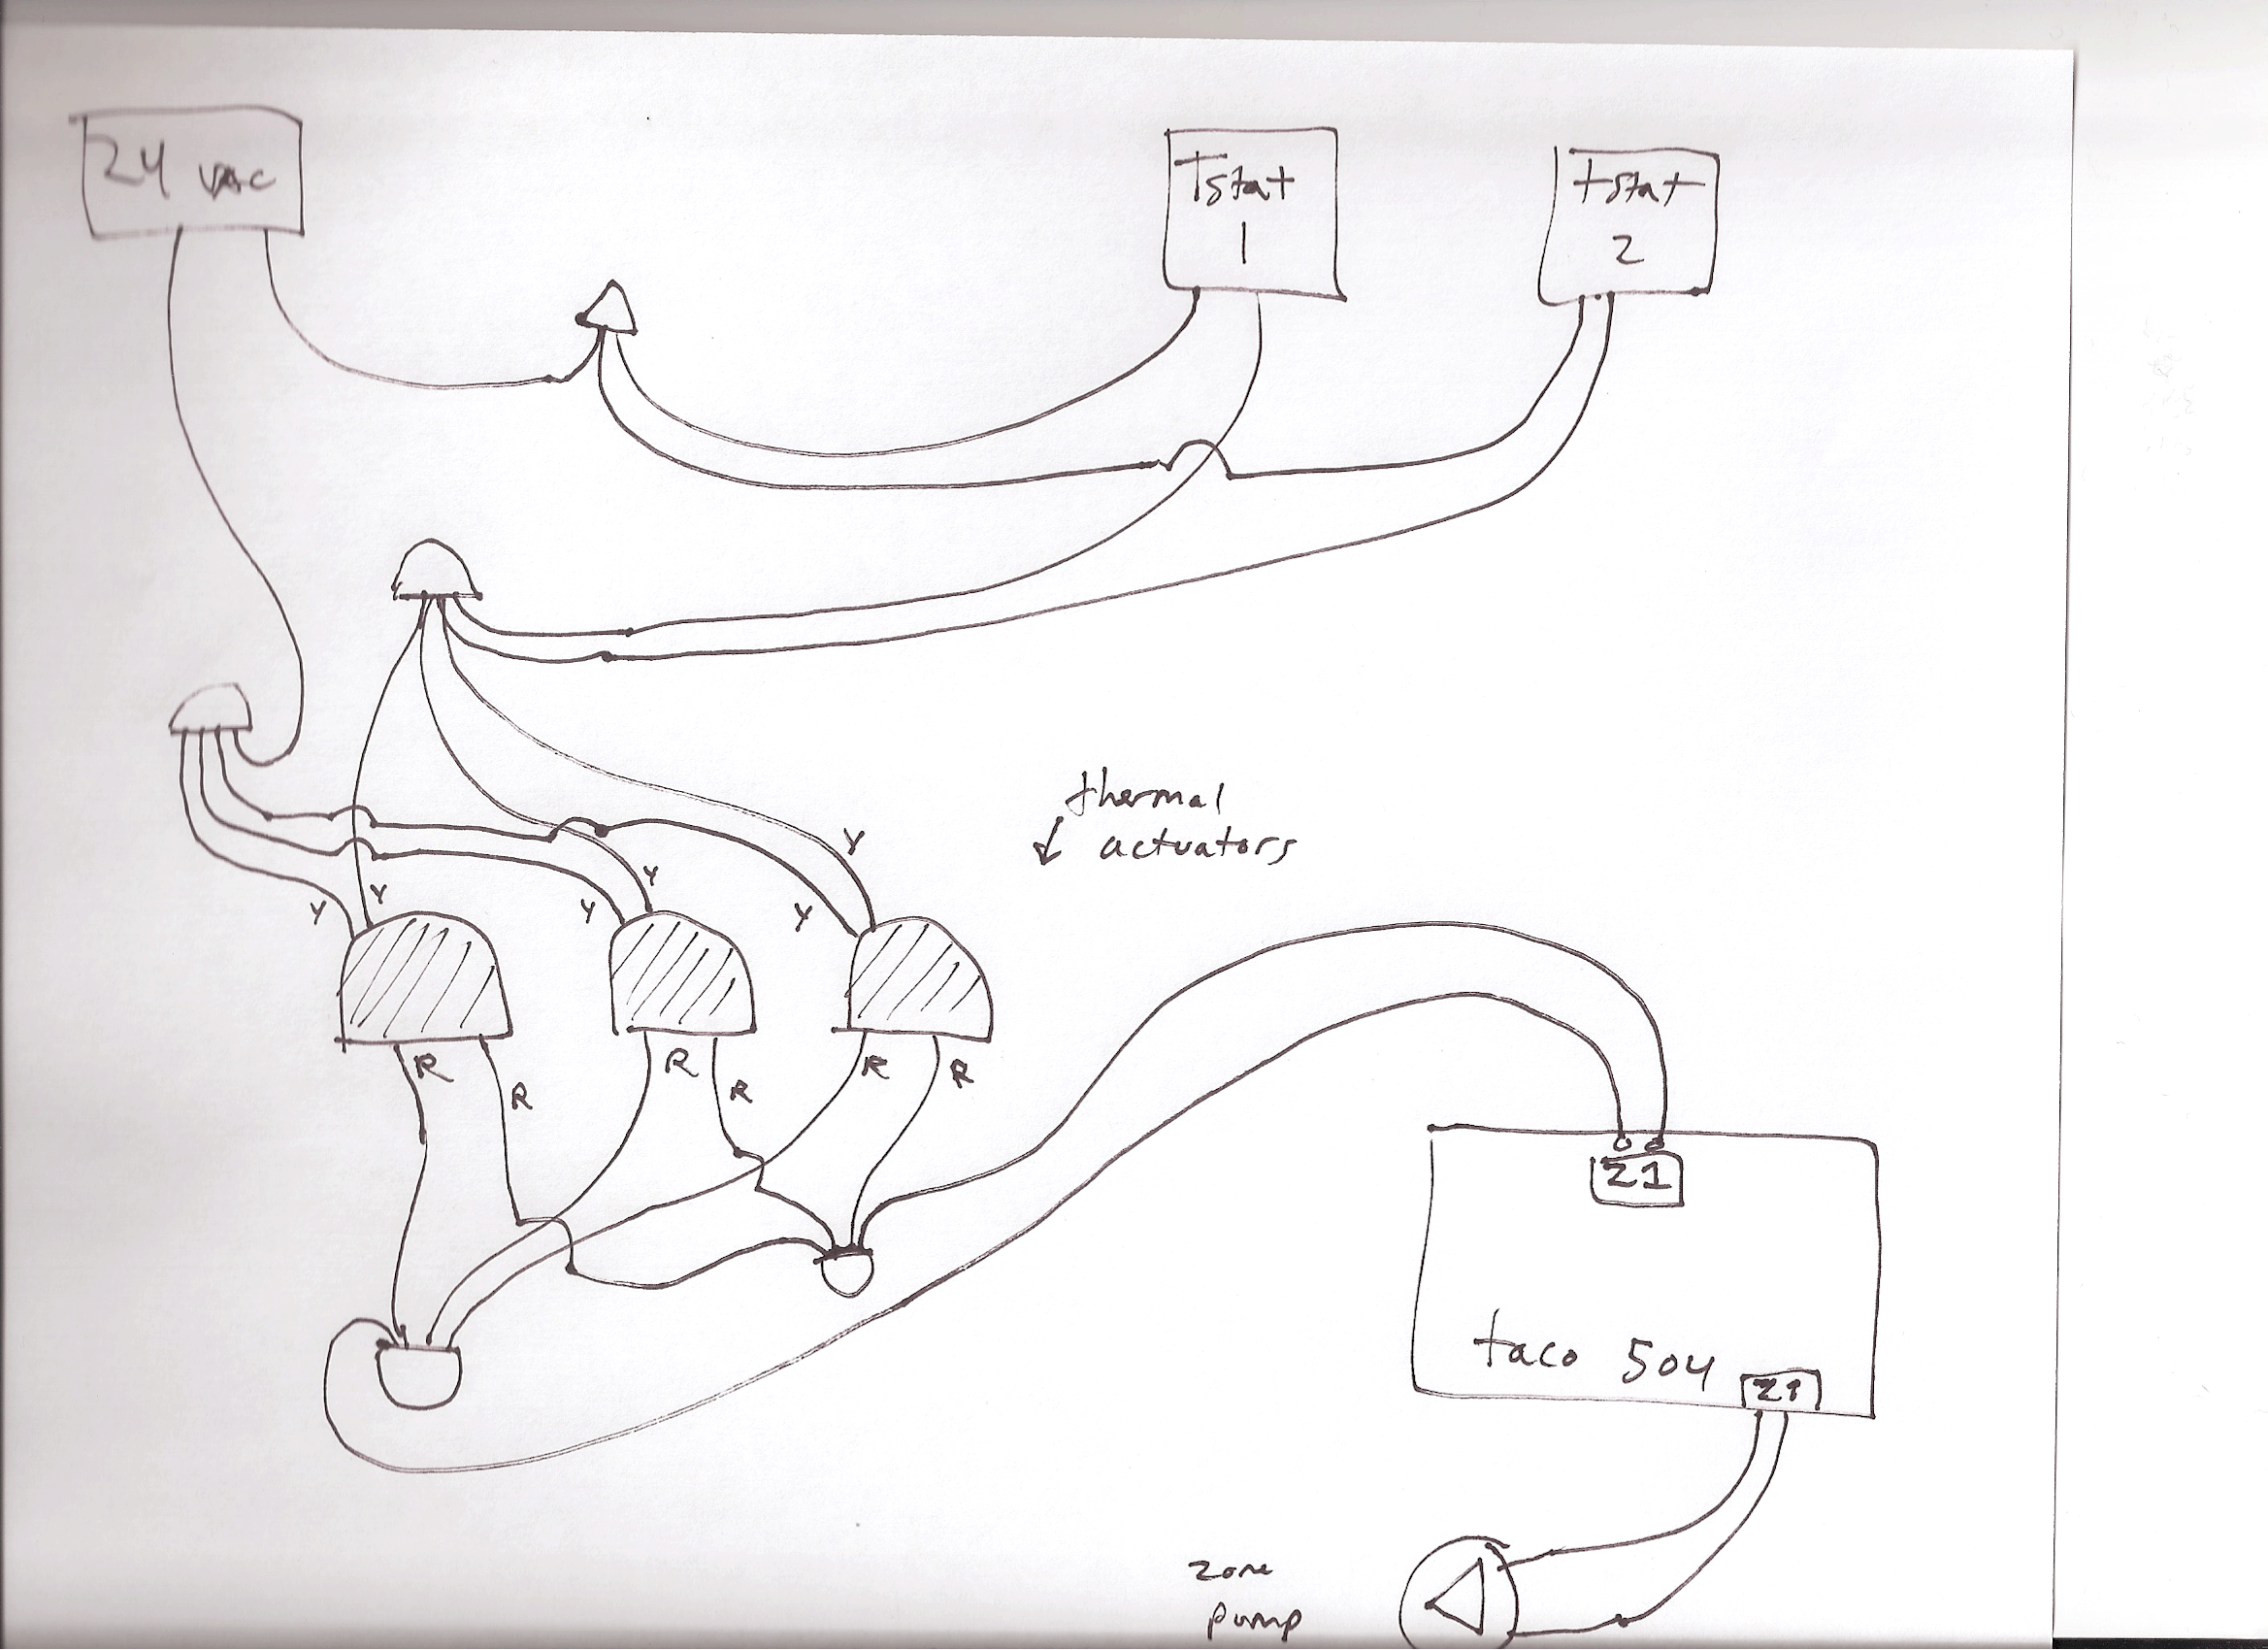 24 VAC
Tstat
1
tstat
2
thermal
↓ actuators
Y
Y
Y
Y
Y
Y
R
R
R
R
R
R
Z1
taco 504
Z1
zone
pump